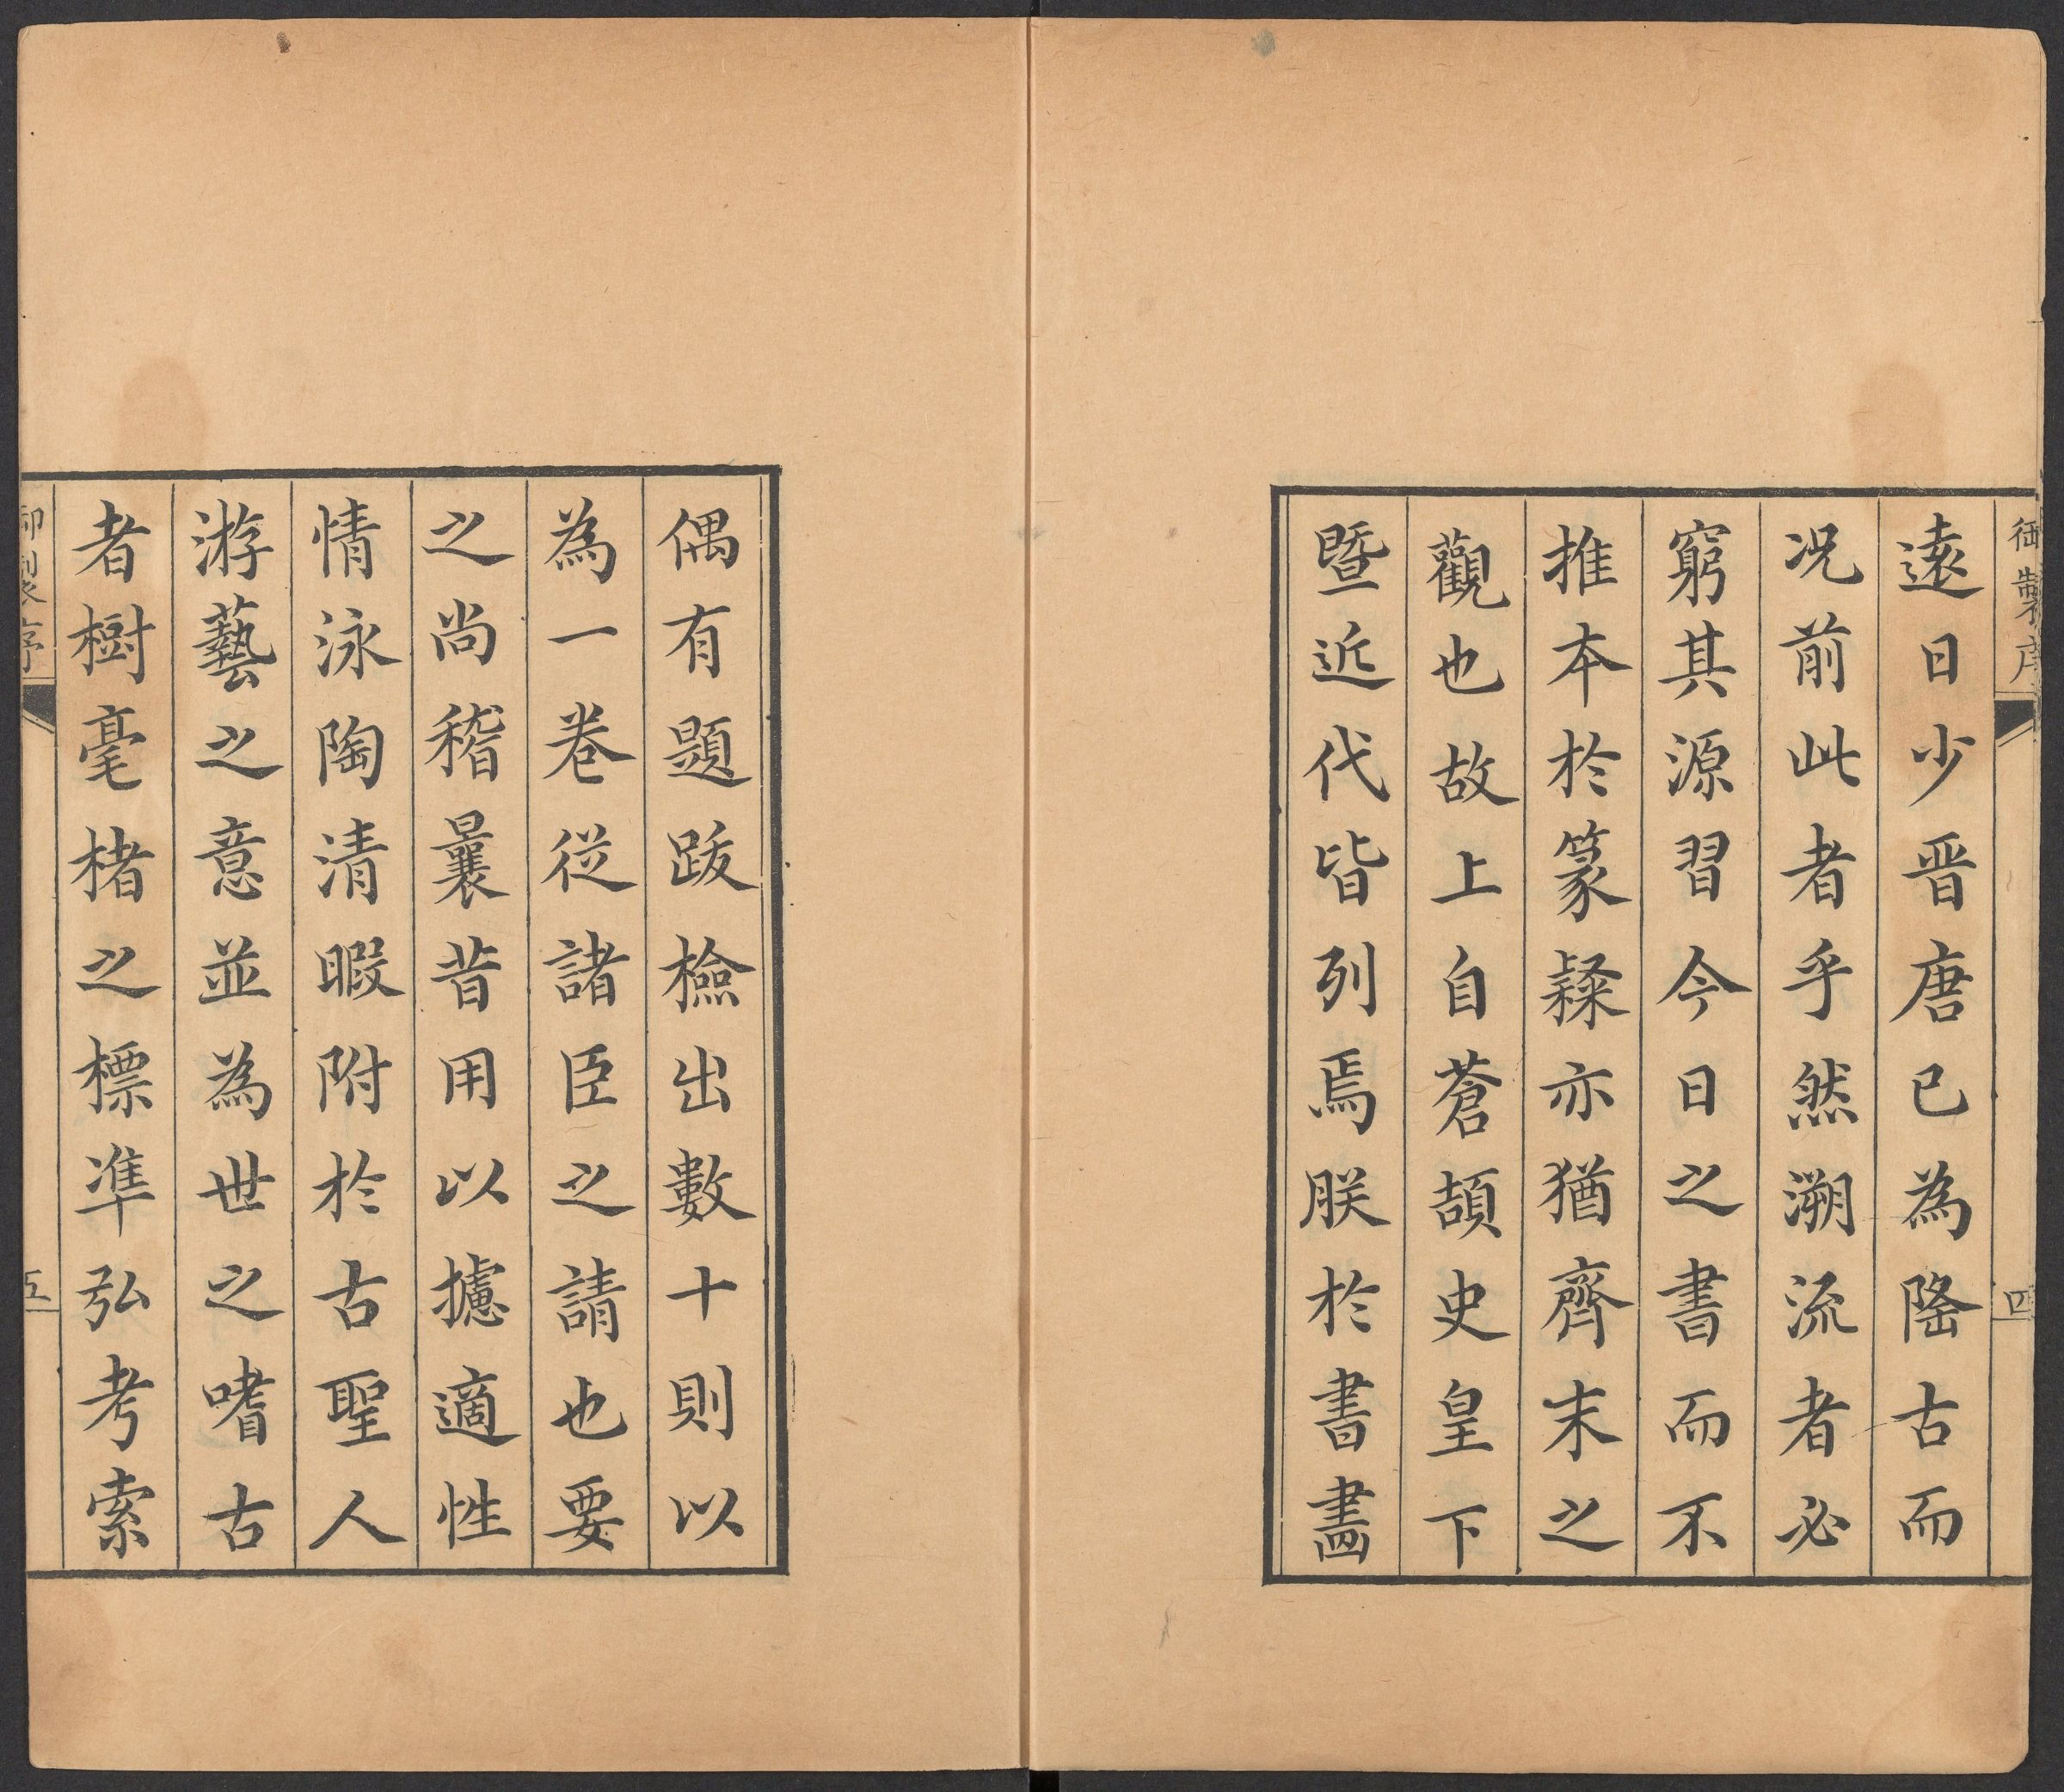 御製序
四
遠日少晋唐已為隆古而
况前此者乎然溯流者必
窮其源習今日之書而不
推本於篆隸亦猶齊末之
觀也故上自蒼頡史皇下
暨近代皆列焉朕於書畫
偶有題跋檢出數十則以
為一卷從諸臣之請也要
之尚稽曩昔用以攄適性
情泳陶清暇附於古聖人
游藝之意並為世之嗜古
者樹毫楮之標準弘考索
御製序
五